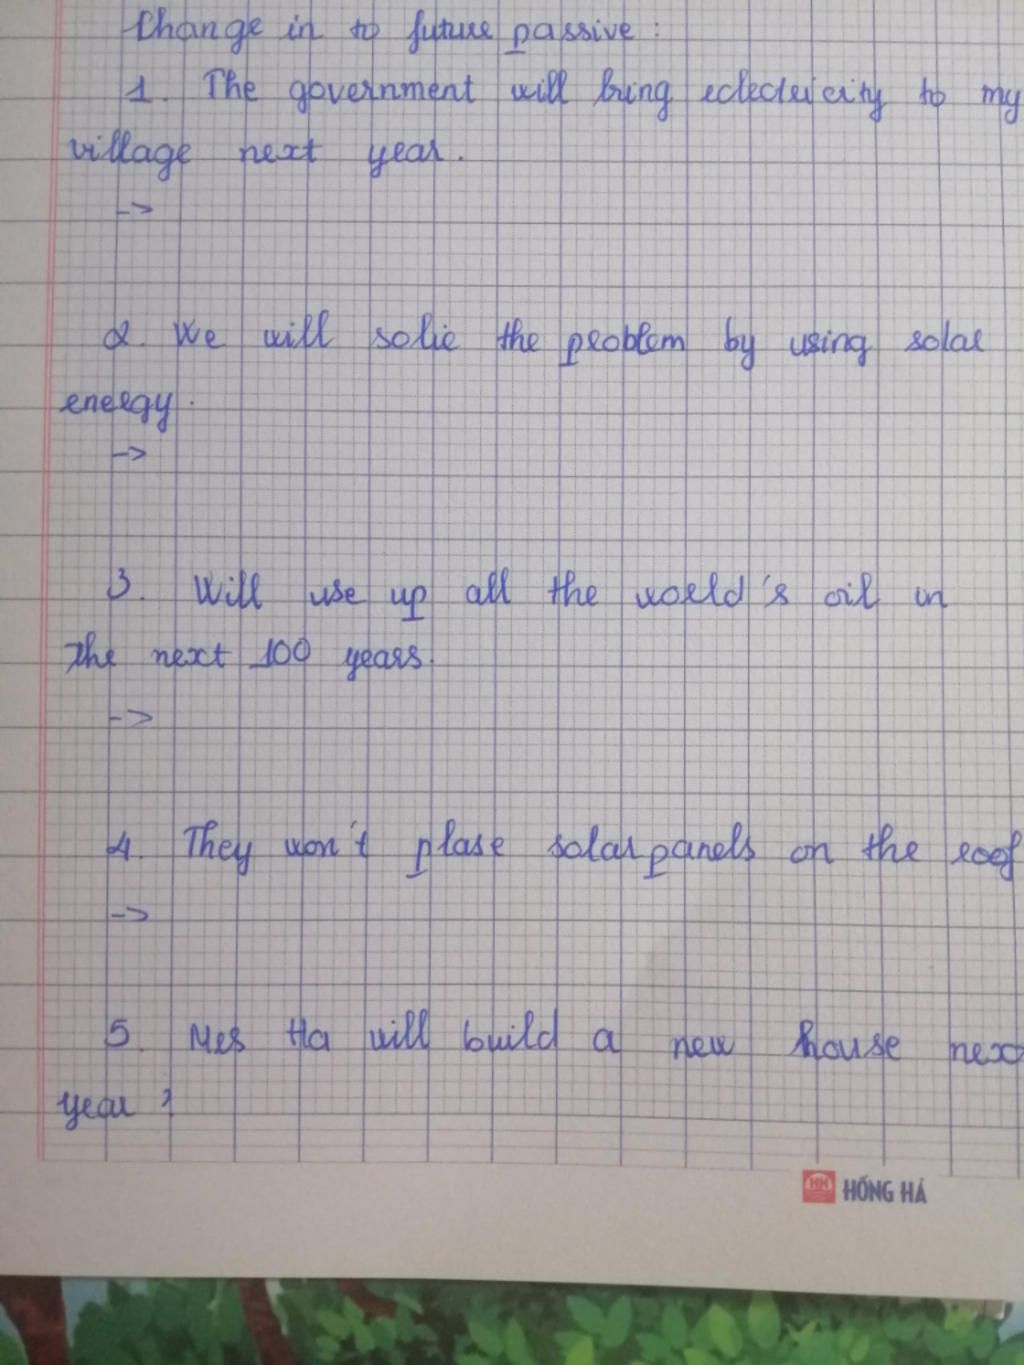 Change in to future passive :
1. The government will bring eclectricity to my
village next year.
->
2. We will solie the problem by using solar
energy.
->
3. Will use up all the world's oil in
the next 100 years.
->
4. They won't plase solar panels on the roof
->
5. Mrs Ha will build a new house next
year ?
HỒNG HÀ